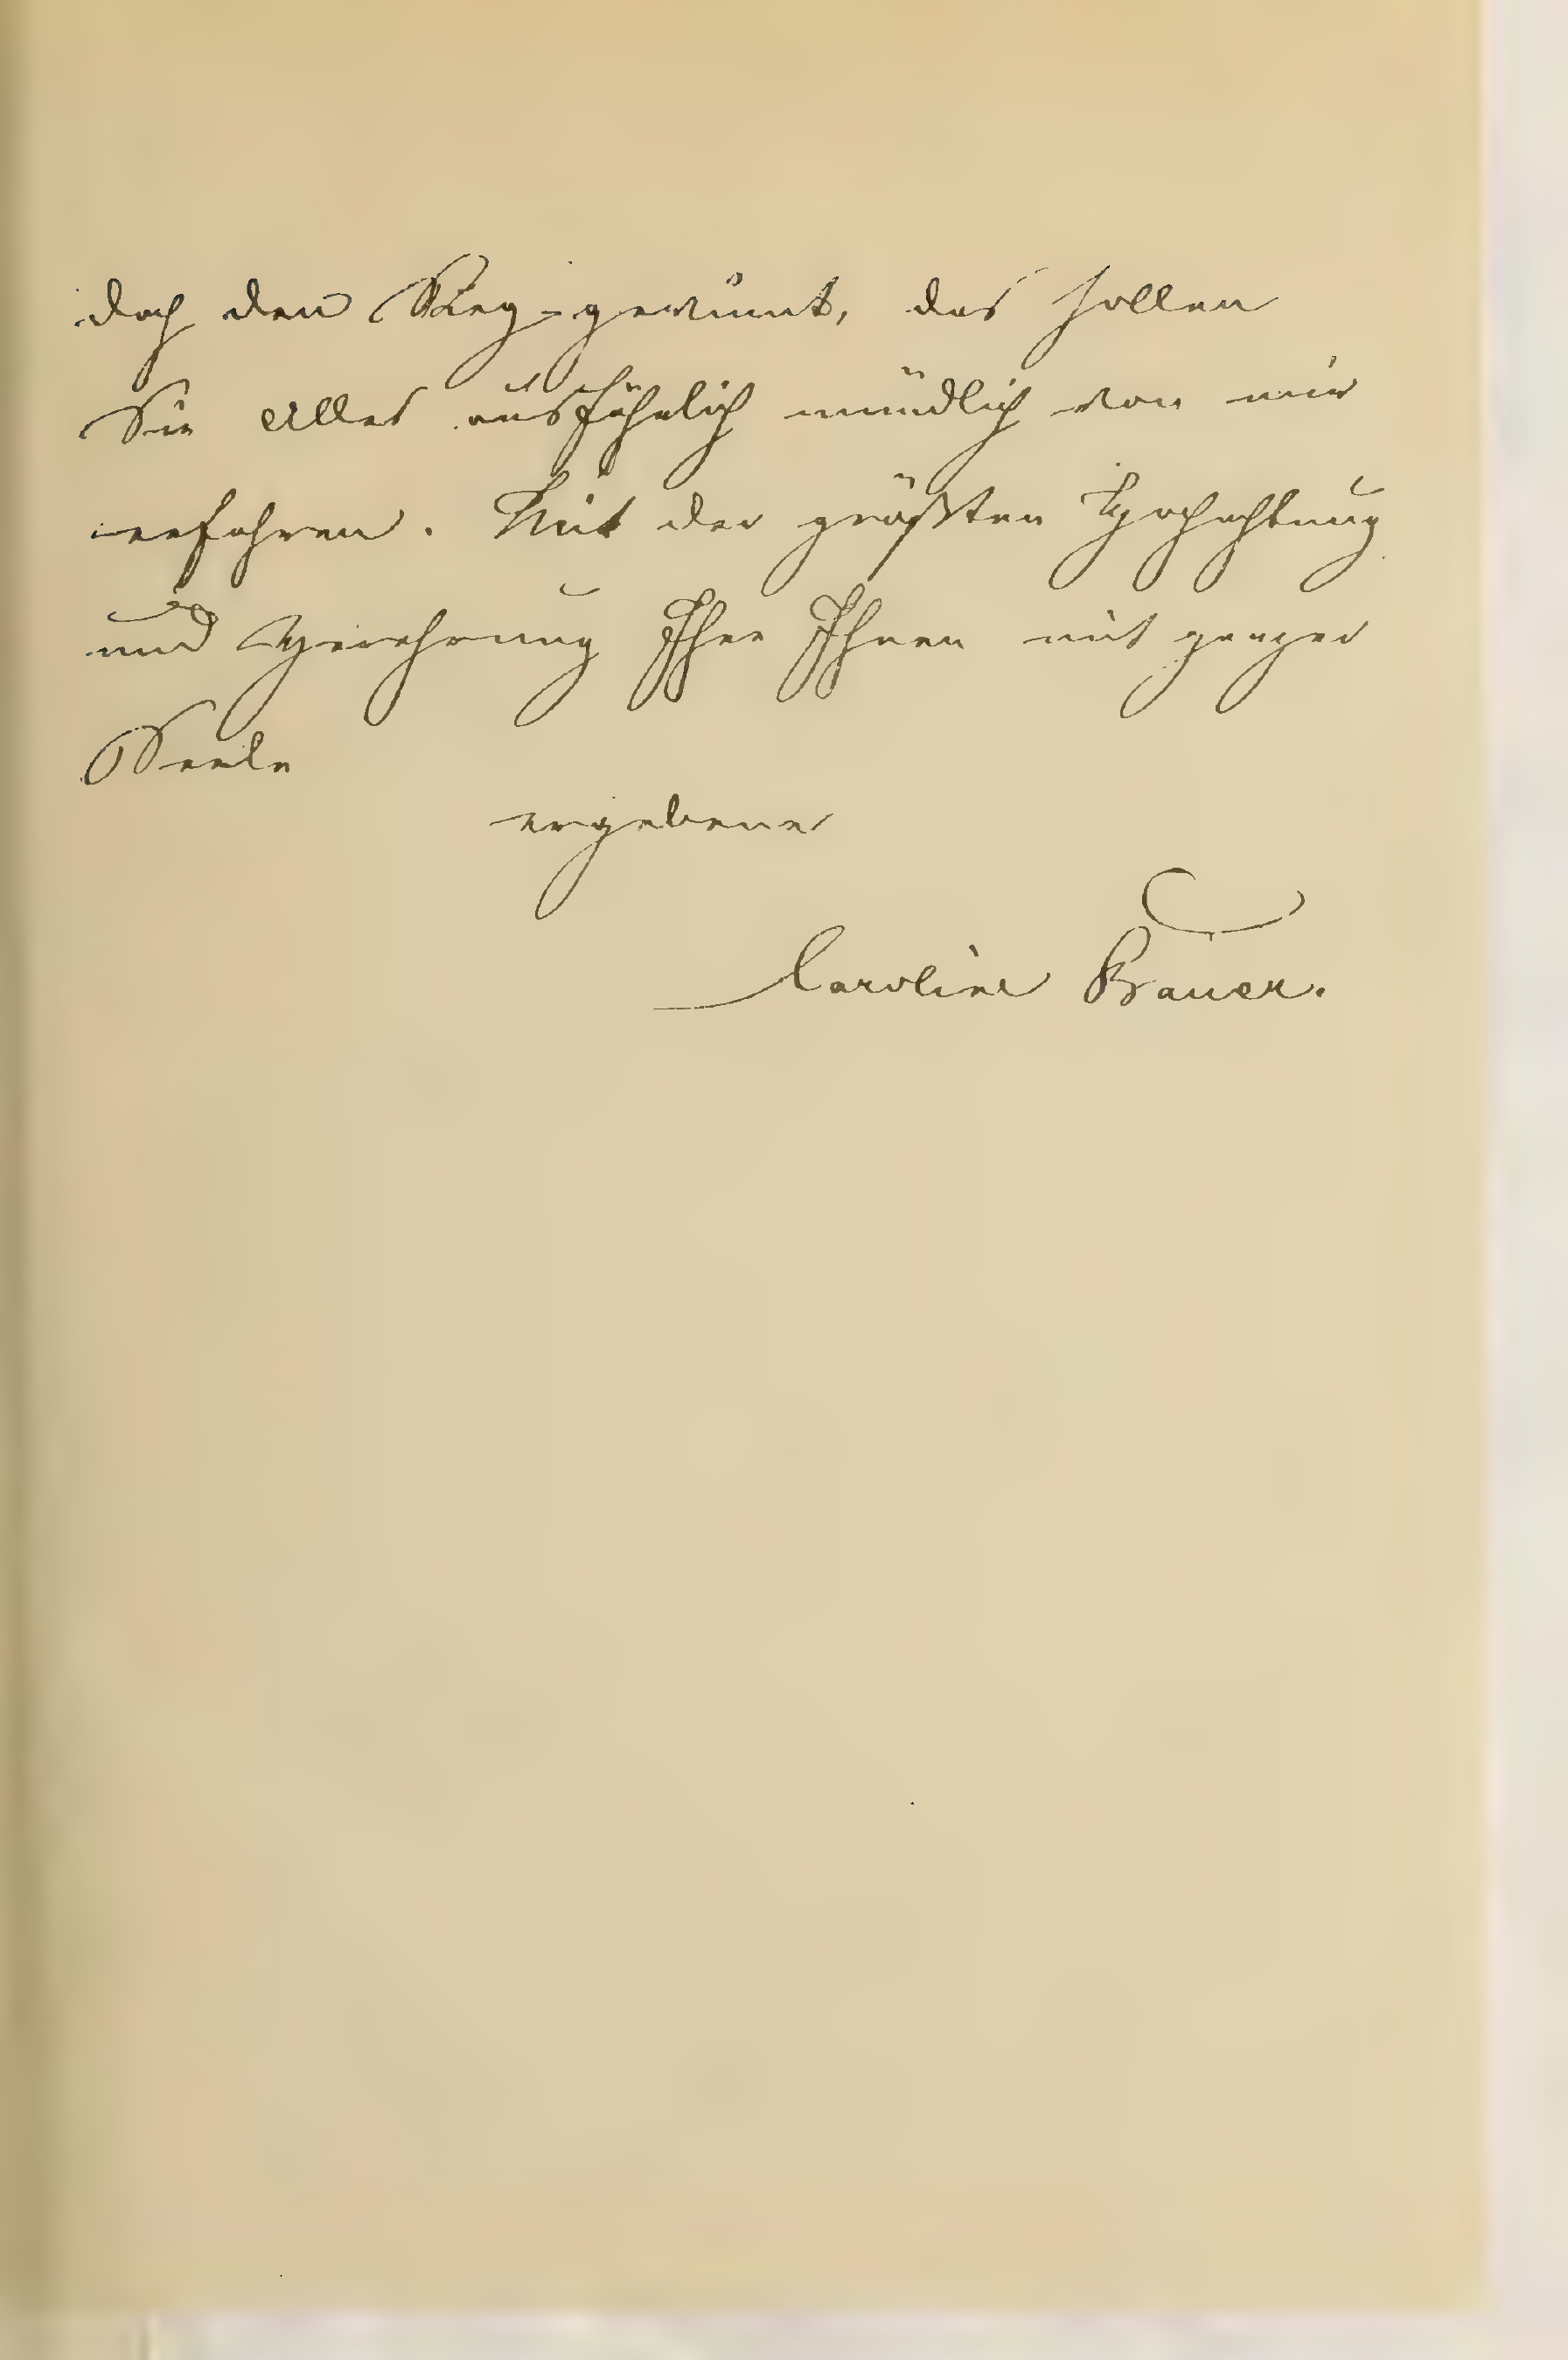 doch den Sieg gewinnt, das sollen
Sie Alles ausführlich mündlich von mir
erfahren. Mit der größten Hochachtung
und Verehrung Ihre Ihnen mit ganzer
Seele
ergebene
Caroline Bauer.